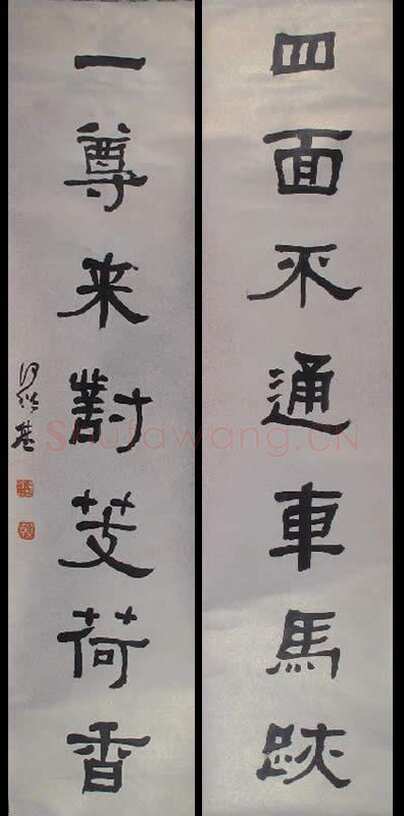 四面不通車馬跡
一尊来對芰荷香
何紹基
shufawang.CN